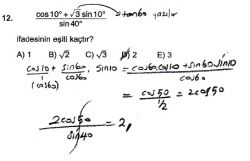 12. cos10° + √3 sin10° / sin40° √3 = tan60 yazılır
ifadesinin eşiti kaçtır?
A) 1 B) √2 C) √3 D) 2 E) 3
cos10 / 1 (cos60) + sin60 / cos60 . sin10 = cos60.cos10 + sin60.sin10 / cos60
= cos50 / 1/2 = 2cos50
2cos50 / sin40 = 2,